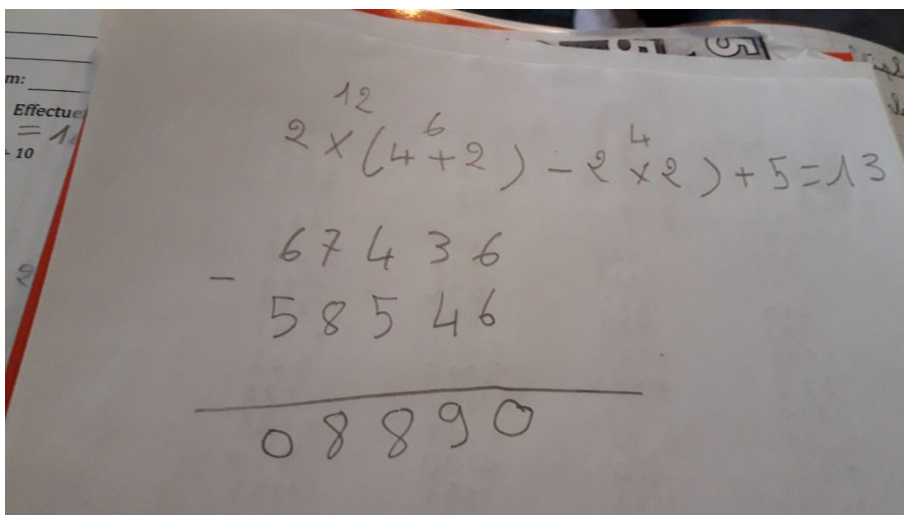 m:
Effectue
= 1
- 10
2
12
6
4
2 × (4 + 2) - 2 × 2) + 5 = 13
67436
-
58546
08890